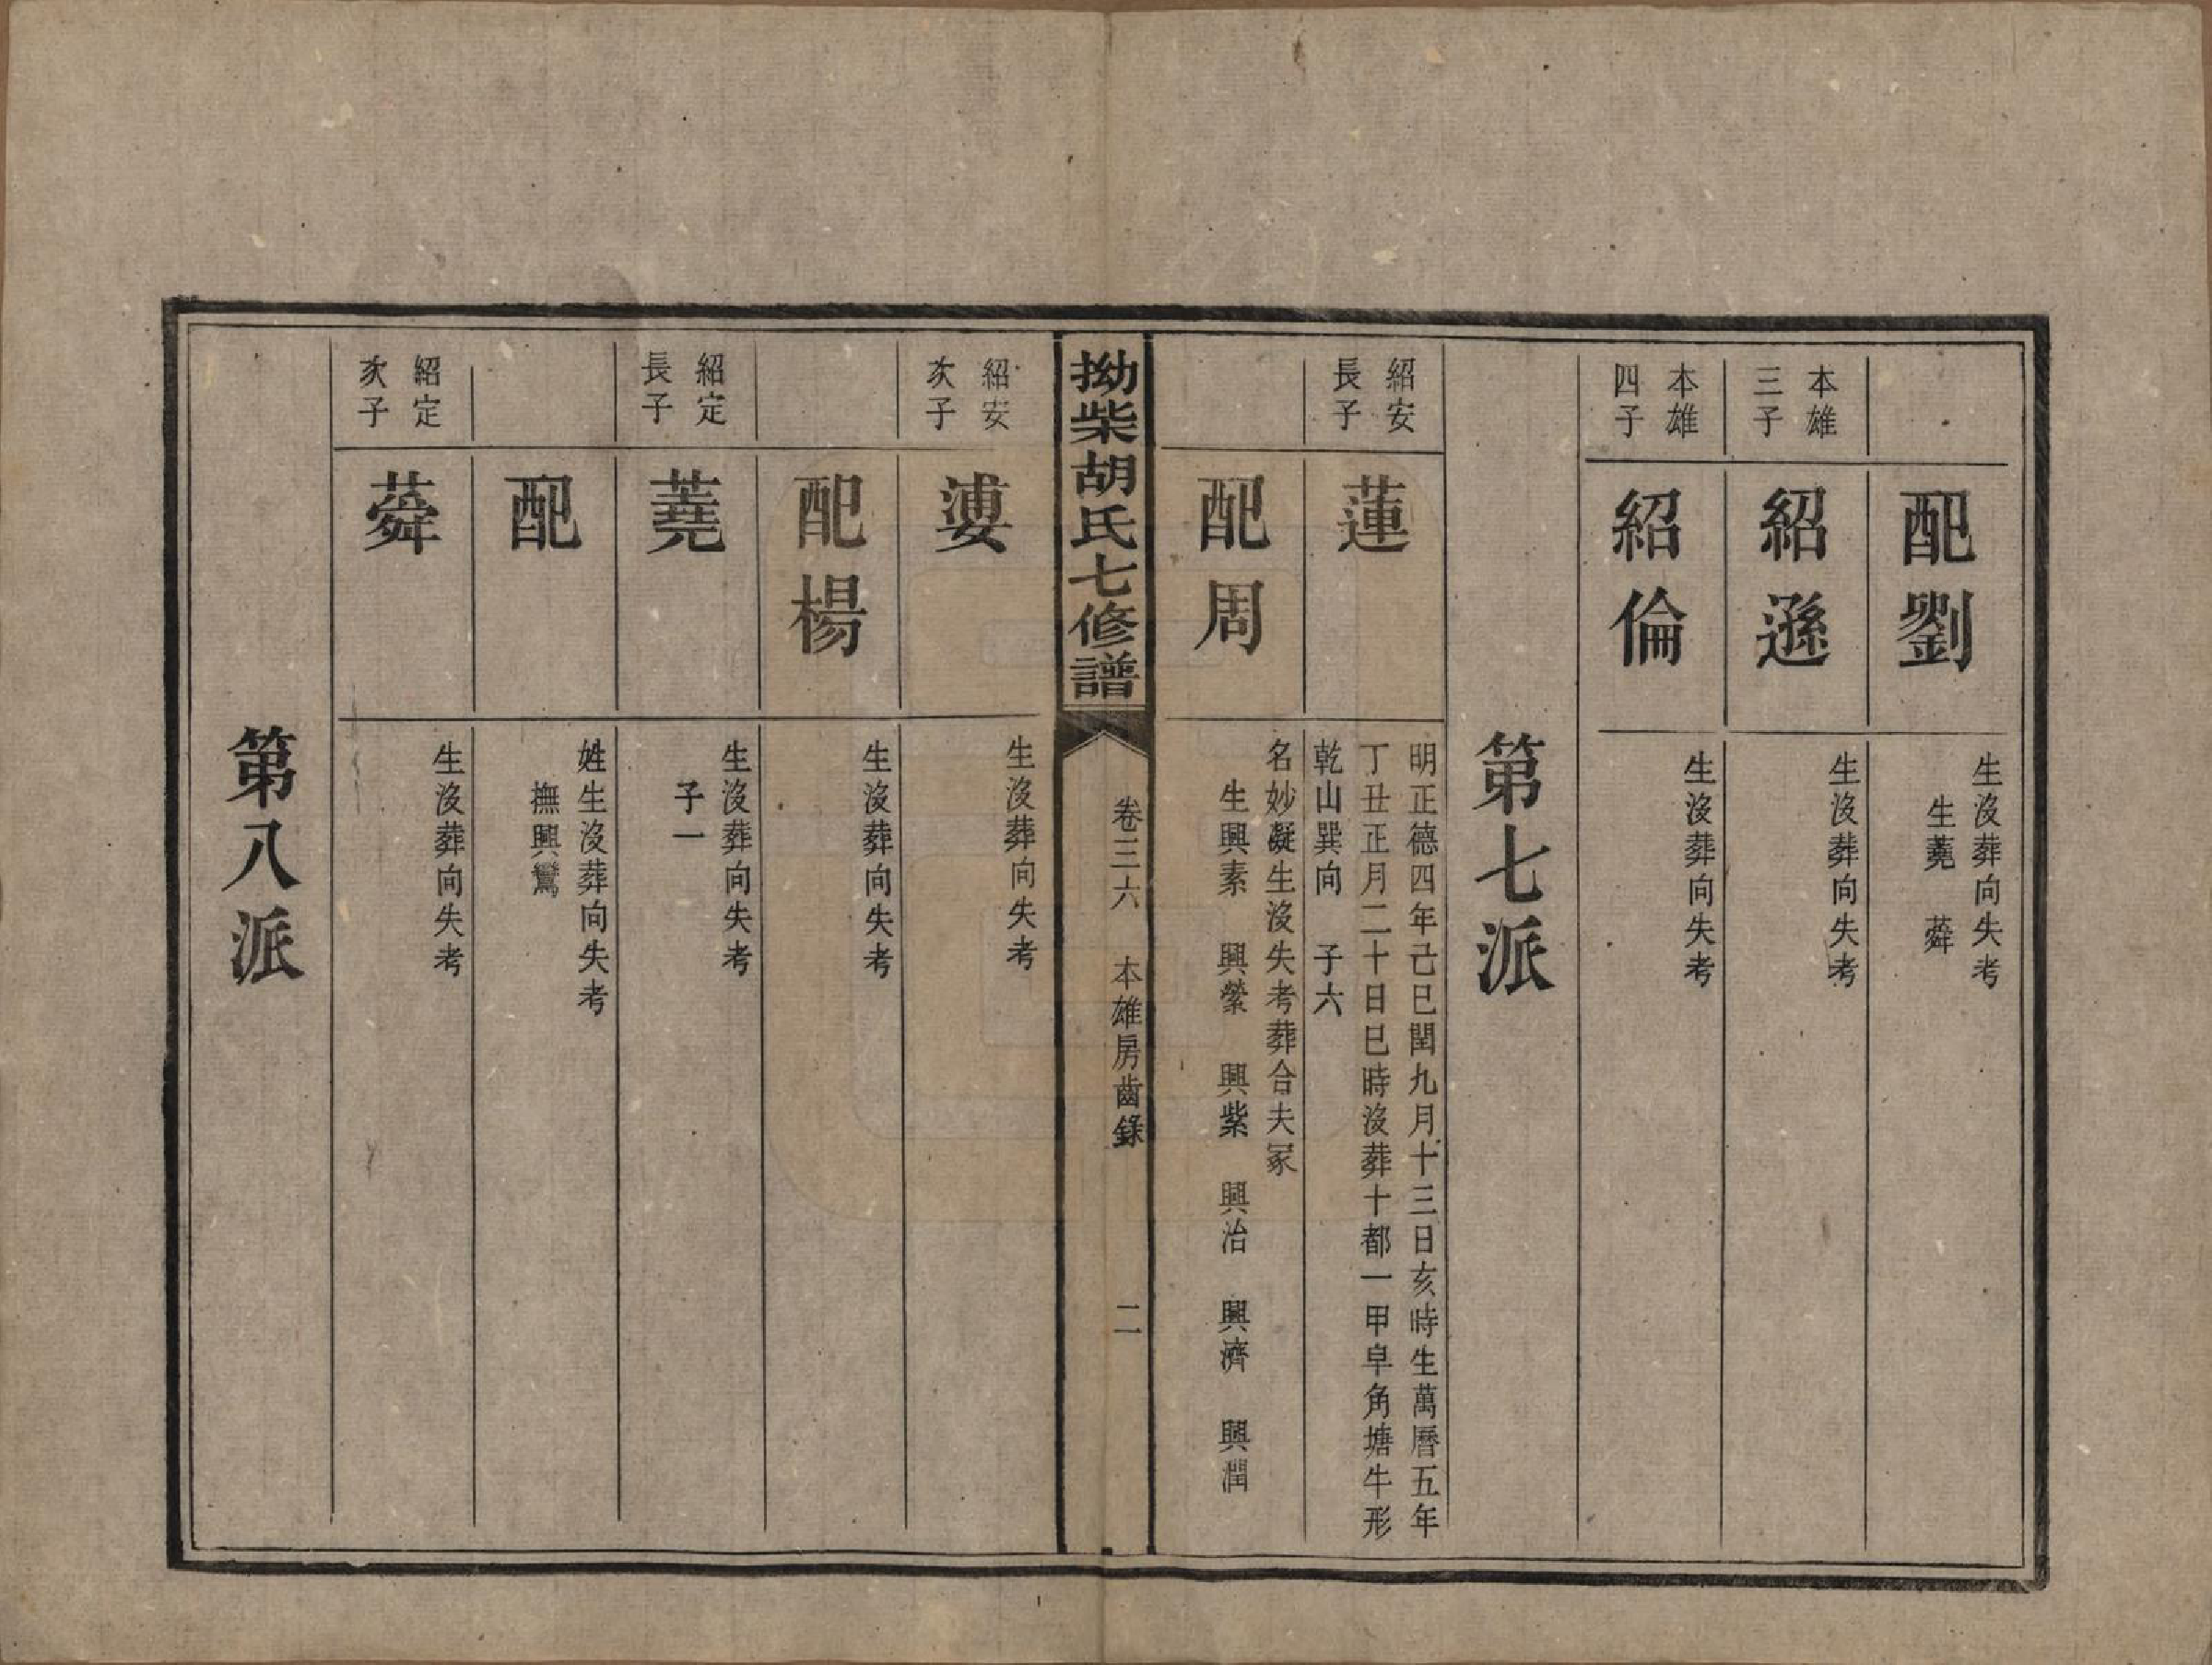 配劉
生沒葬向失考
生蕘　蕣
本雄
三子
紹遜
生沒葬向失考
本雄
四子
紹倫
生沒葬向失考
第七派
紹安
長子
蓮
明正德四年己巳閏九月十三日亥時生萬曆五年
丁丑正月二十日巳時沒葬十都一甲皁角塘牛形
乾山巽向　子六
配周
名妙凝生沒失考葬合夫冢
生興素　興縈　興紫　興治　興濟　興潤
拗柴胡氏七修譜
卷三六　本雄房齒錄
二
紹安
次子
生沒葬向失考
配楊
生沒葬向失考
紹定
長子
蕘
生沒葬向失考
子一
配
姓生沒葬向失考
撫興鸞
紹定
次子
蕣
生沒葬向失考
第八派